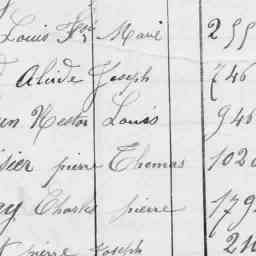 Louis Fçs Marie 255
Alcide Joseph 746
Nestor Louis 946
sier pierre Thomas 102
ey Charles pierre 179
pierre Joseph 21